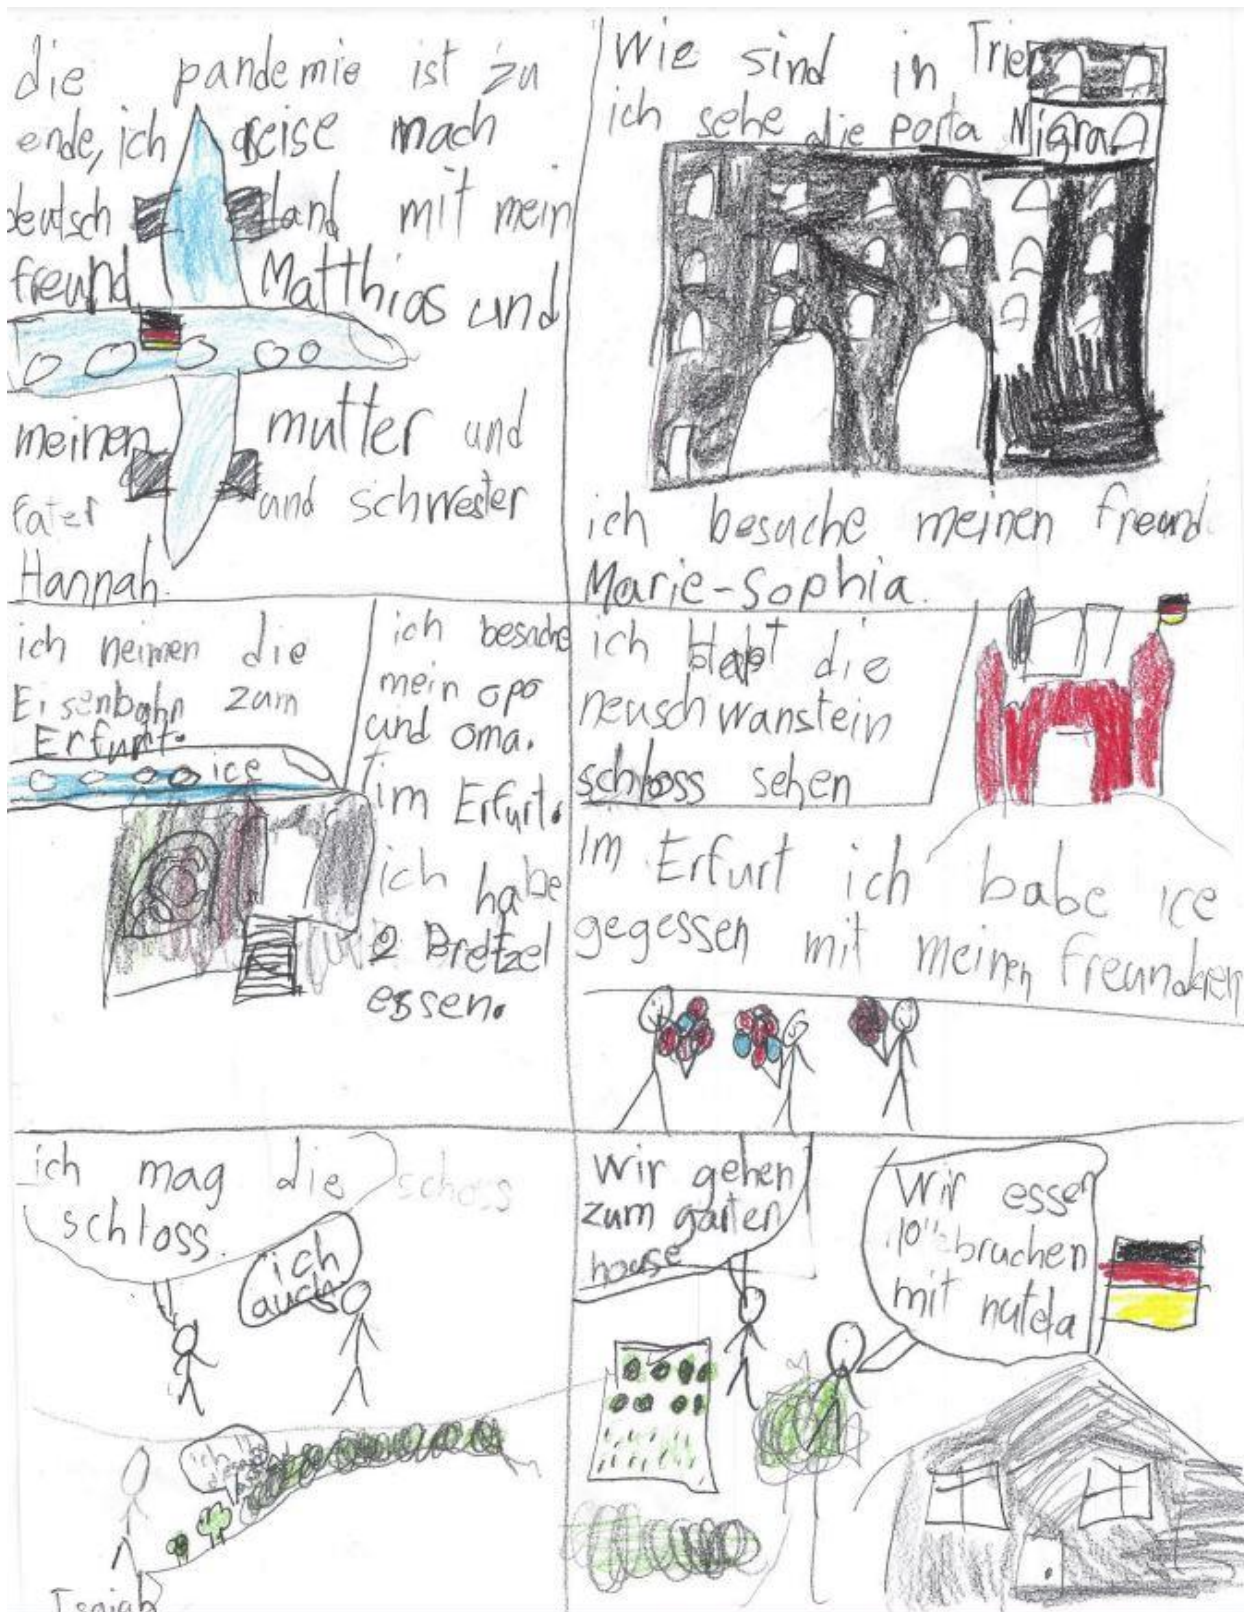 die pandemie ist zu
ende, ich reise nach
deutsch land mit mein
freund Matthias und
meinen mutter und
fater und schwester
Hannah.
Wie sind in Trier
ich sehe die Porta Nigra
ich besuche meinen freund
Marie-Sophia.
ich neimen die
Eisenbahn zum
Erfurt.
ice
ich besuche
mein opa
und oma.
im Erfurt.
ich habe
2 Bretzel
essen.
ich die
neuschwanstein
schloss sehen
im Erfurt ich habe ice
gegessen mit meinen freunden
ich mag die
schloss.
schoss
ich
auch
Isaiah
wir gehen
zum garten
house
Wir essen
10 bruchen
mit nutela